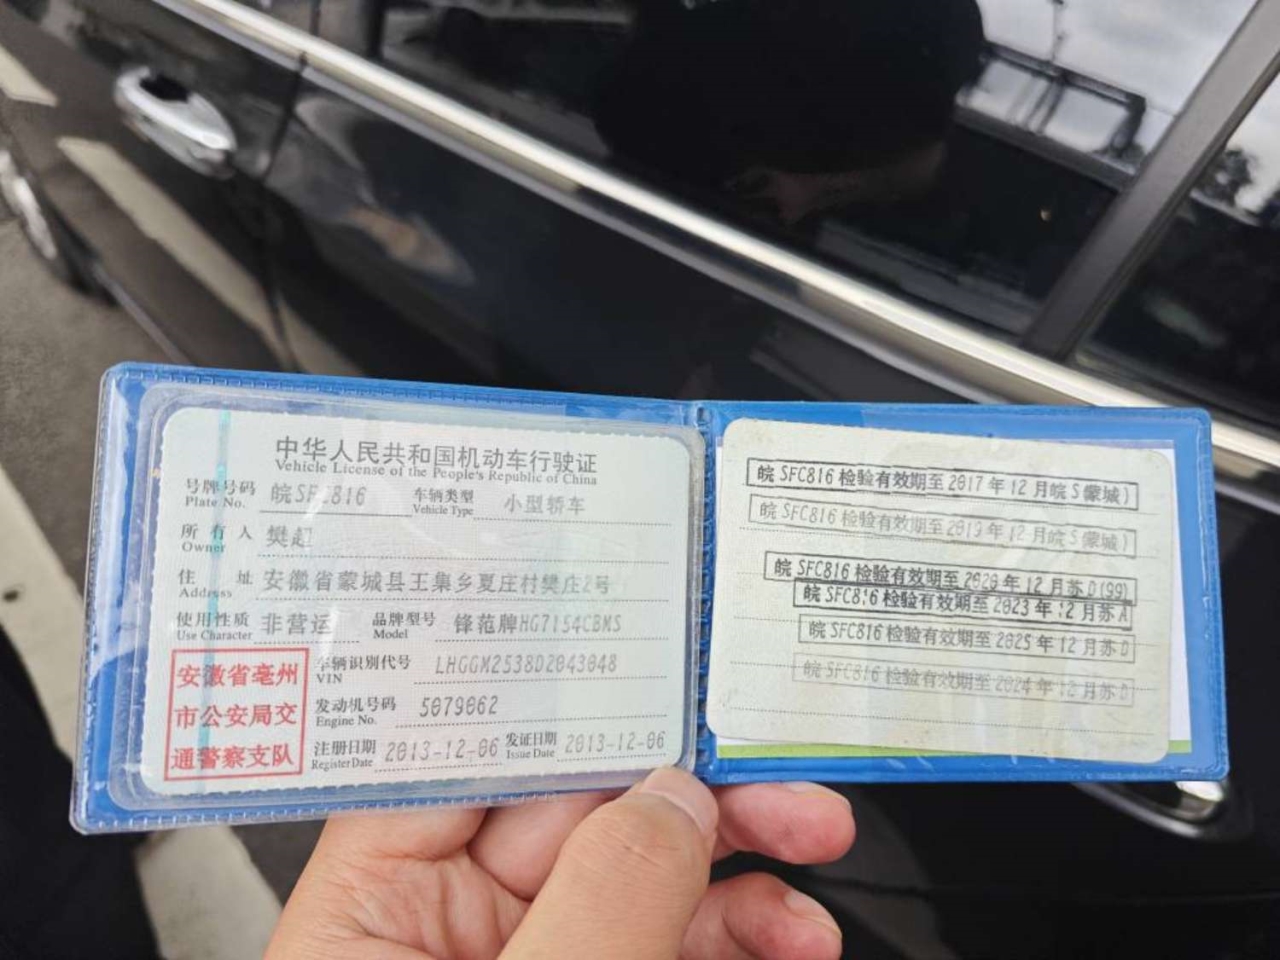 中华人民共和国机动车行驶证
Vehicle License of the People's Republic of China
号牌号码 皖SFC816 车辆类型 小型轿车
Plate No. Vehicle Type
所有人 樊超
Owner
住址 安徽省蒙城县王集乡夏庄村樊庄2号
Address
使用性质 非营运 品牌型号 锋范牌HG7154CBMS
Use Character Model
安徽省亳州
市公安局交
通警察支队
车辆识别代号 LHGGM2538D2043048
VIN
发动机号码 5079062
Engine No.
注册日期 2013-12-06 发证日期 2013-12-06
Register Date Issue Date
皖SFC816 检验有效期至2017年12月皖S(蒙城)
皖SFC816 检验有效期至2019年12月皖S(蒙城)
皖SFC816 检验有效期至2020年12月苏D(99)
皖SFC816 检验有效期至2023年12月苏A
皖SFC816 检验有效期至2025年12月苏D
皖SFC816 检验有效期至2024年12月苏D